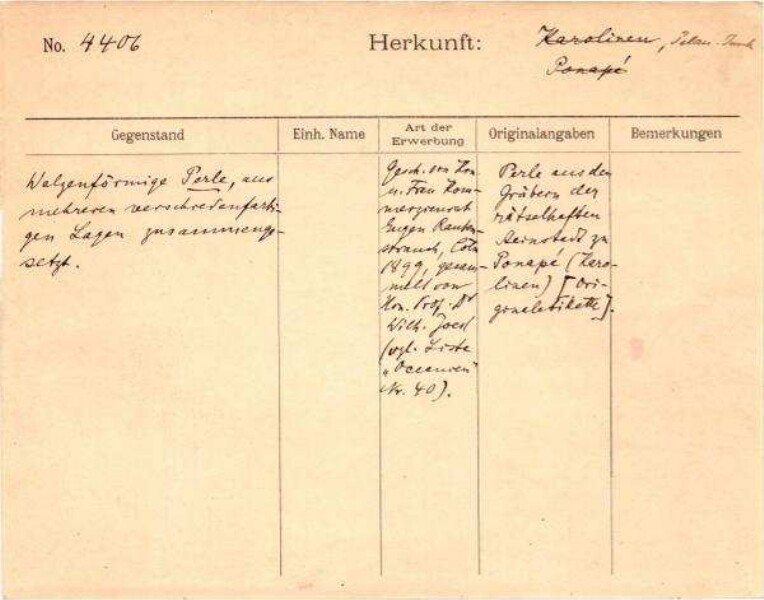 No. 4406
Herkunft:
Karolinen, Palau-Inseln
Ponapé
Gegenstand
Einh. Name
Art der Erwerbung
Originalangaben
Bemerkungen
Walzenförmige Perle, aus
mehreren verschiedenfarbi-
gen Lagen zusammenge-
setzt.
Gesch. von Hrn
u. Frau Kom-
merzienrat
Eugen Rauten-
strauch, Cöln
1899, gesam-
melt von
Hon. Prof. Dr
Wilh. Joest
(vgl. Liste
„Oceanien"
Nr. 40).
Perle aus den
Gräbern der
rätselhaften
Steinstadt zu
Ponapé (Karo-
linen) [Ori-
ginaletikette].